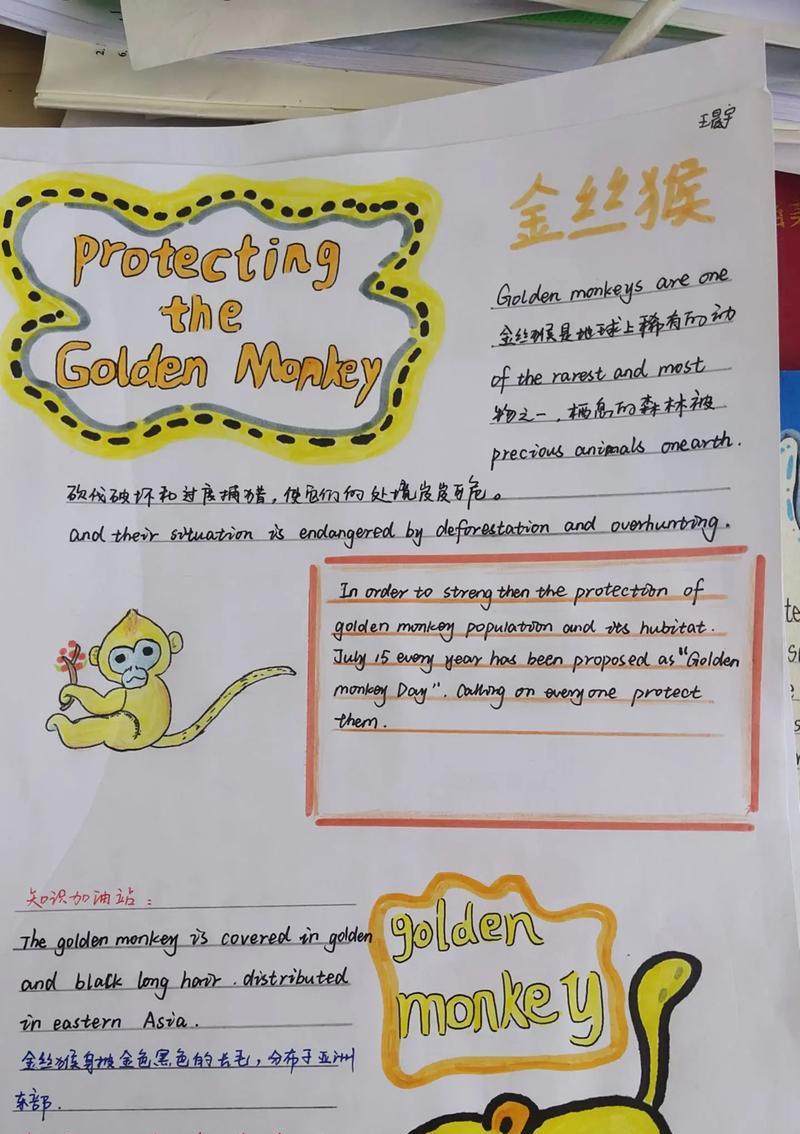 王晨宇
protecting
the
Golden Monkey
金丝猴
Golden monkeys are one
金丝猴是地球上稀有的动
of the rarest and most
物之一，栖息的森林被
precious animals onearth.
砍伐破坏和过度捕猎，使它们的处境岌岌可危。
and their situation is endangered by deforestation and overhunting.
In order to streng then the protection of
golden monkey population and its hubitat.
July 15 every year has been proposed as "Golden
monkey Day". Calling on everyone protect
them.
知识加油站：
The golden monkey is covered in golden
and black long hair. distributed
in eastern Asia.
金丝猴身披金色黑色的长毛，分布于亚洲
东部.
golden
monkey